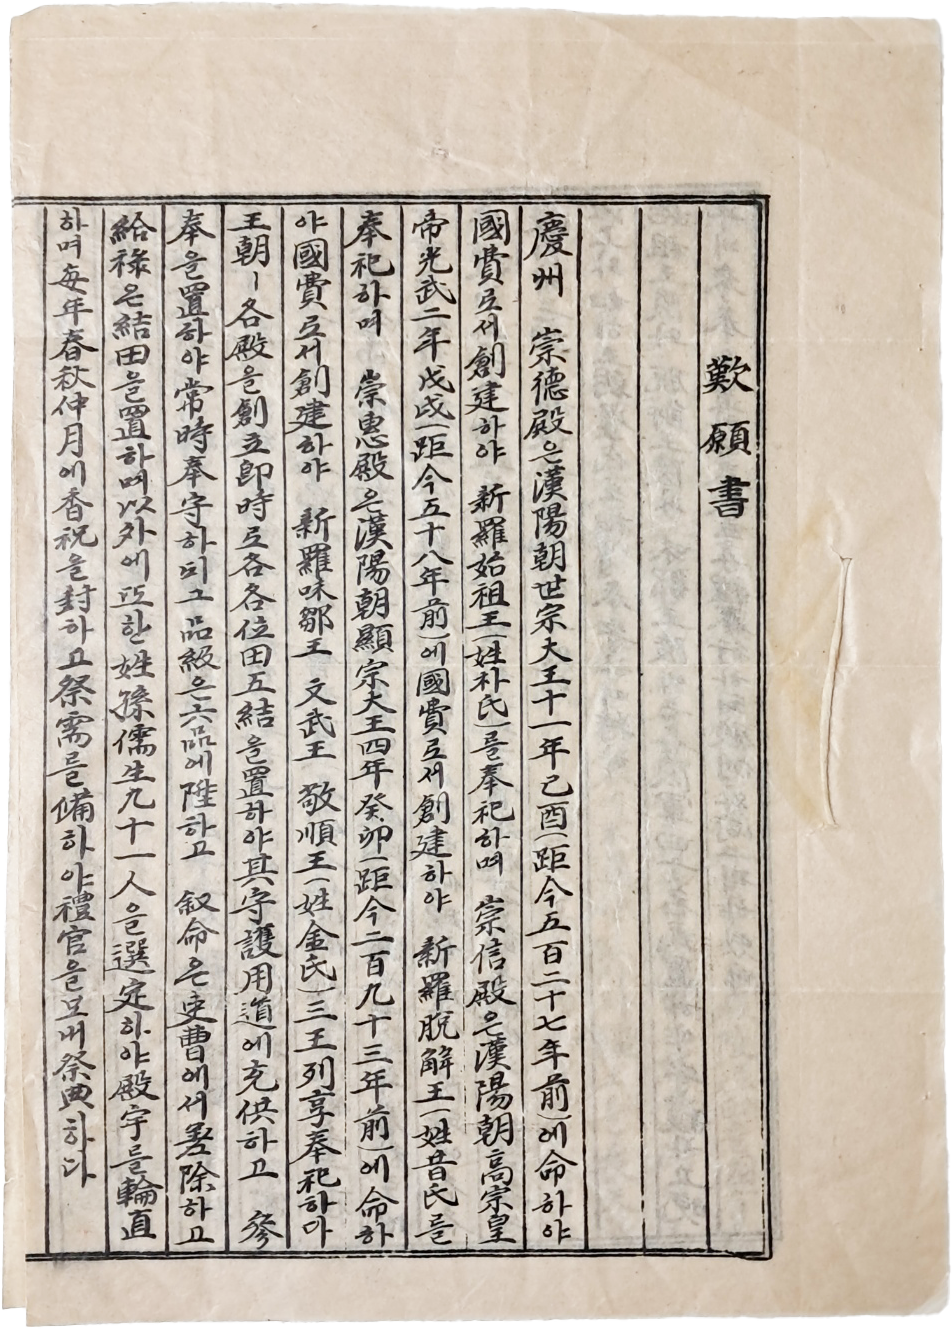 歎願書
慶州 崇德殿은漢陽朝世宗大王十一年己酉(距今五百二十七年前)에命하야
國費로서創建하야 新羅始祖王(姓朴氏)를奉祀하며 崇信殿은漢陽朝高宗皇
帝光武二年戊戌(距今五十八年前)에國費로서創建하야 新羅脫解王(姓昔氏를
奉祀하며 崇惠殿은漢陽朝顯宗大王四年癸卯(距今二百九十三年前)에命하
야國費로서創建하야 新羅味鄒王 文武王 敬順王(姓金氏)三王列享奉祀하마
王朝ー各殿을創立卽時로各各位田五結을置하야其守護用道에充供하고 參
奉을置하야常時奉守하되그品級은六品에陞하고 叙命은吏曹에서差除하고
給祿은結田을置하며以外에또한姓孫儒生九十一人을選定하야殿宇를輪直
하며每年春秋仲月에香祝을封하고祭需를備하야禮官을보내祭典하다